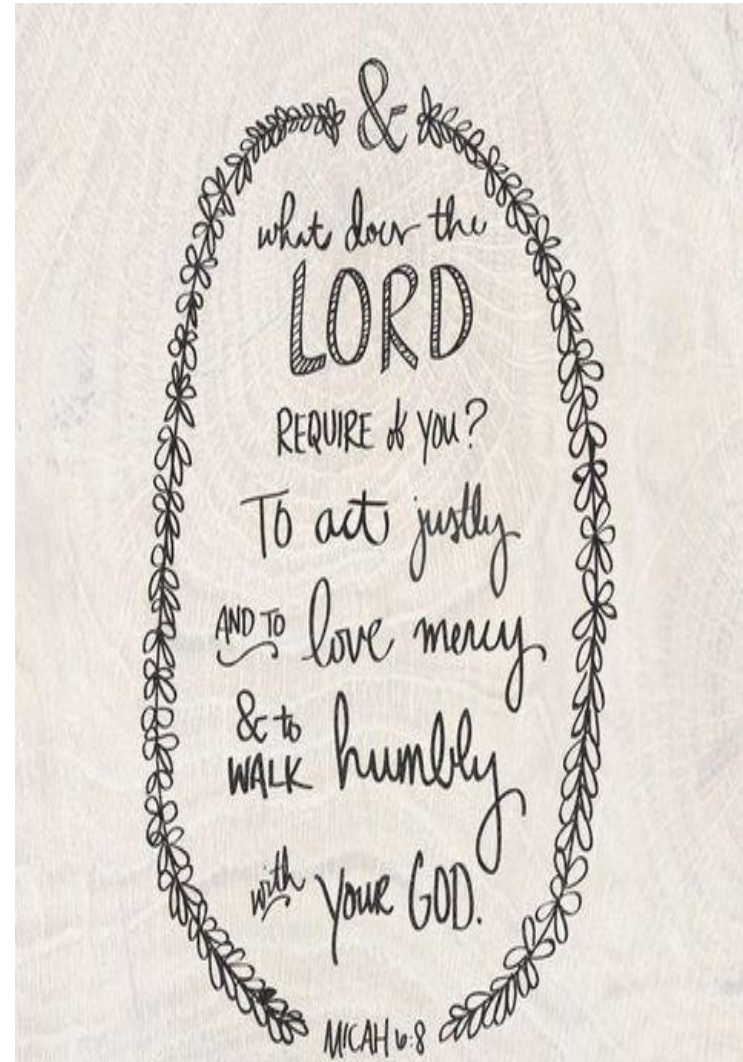 &
what does the
LORD
REQUIRE of YOU?
To act justly
AND TO love mercy
& to
WALK humbly
with YOUR GOD.
MICAH 6:8